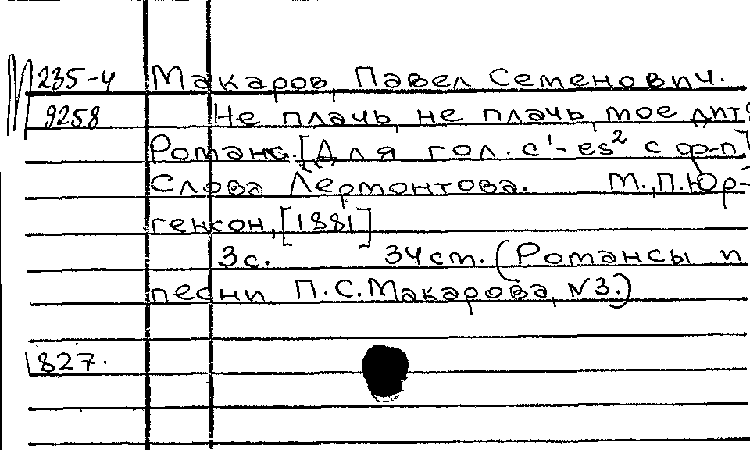 М 235-4 Макаров, Павел Семенович.
9258 Не плачь, не плачь, мое дитя
Романс. [Для гол. c¹-es² с ф-п]
Слова Лермонтова. М., П. Юр-
генсон, [1881]
3с. 34 ст. (Романсы и
песни П.С. Макарова, N3.)
827.